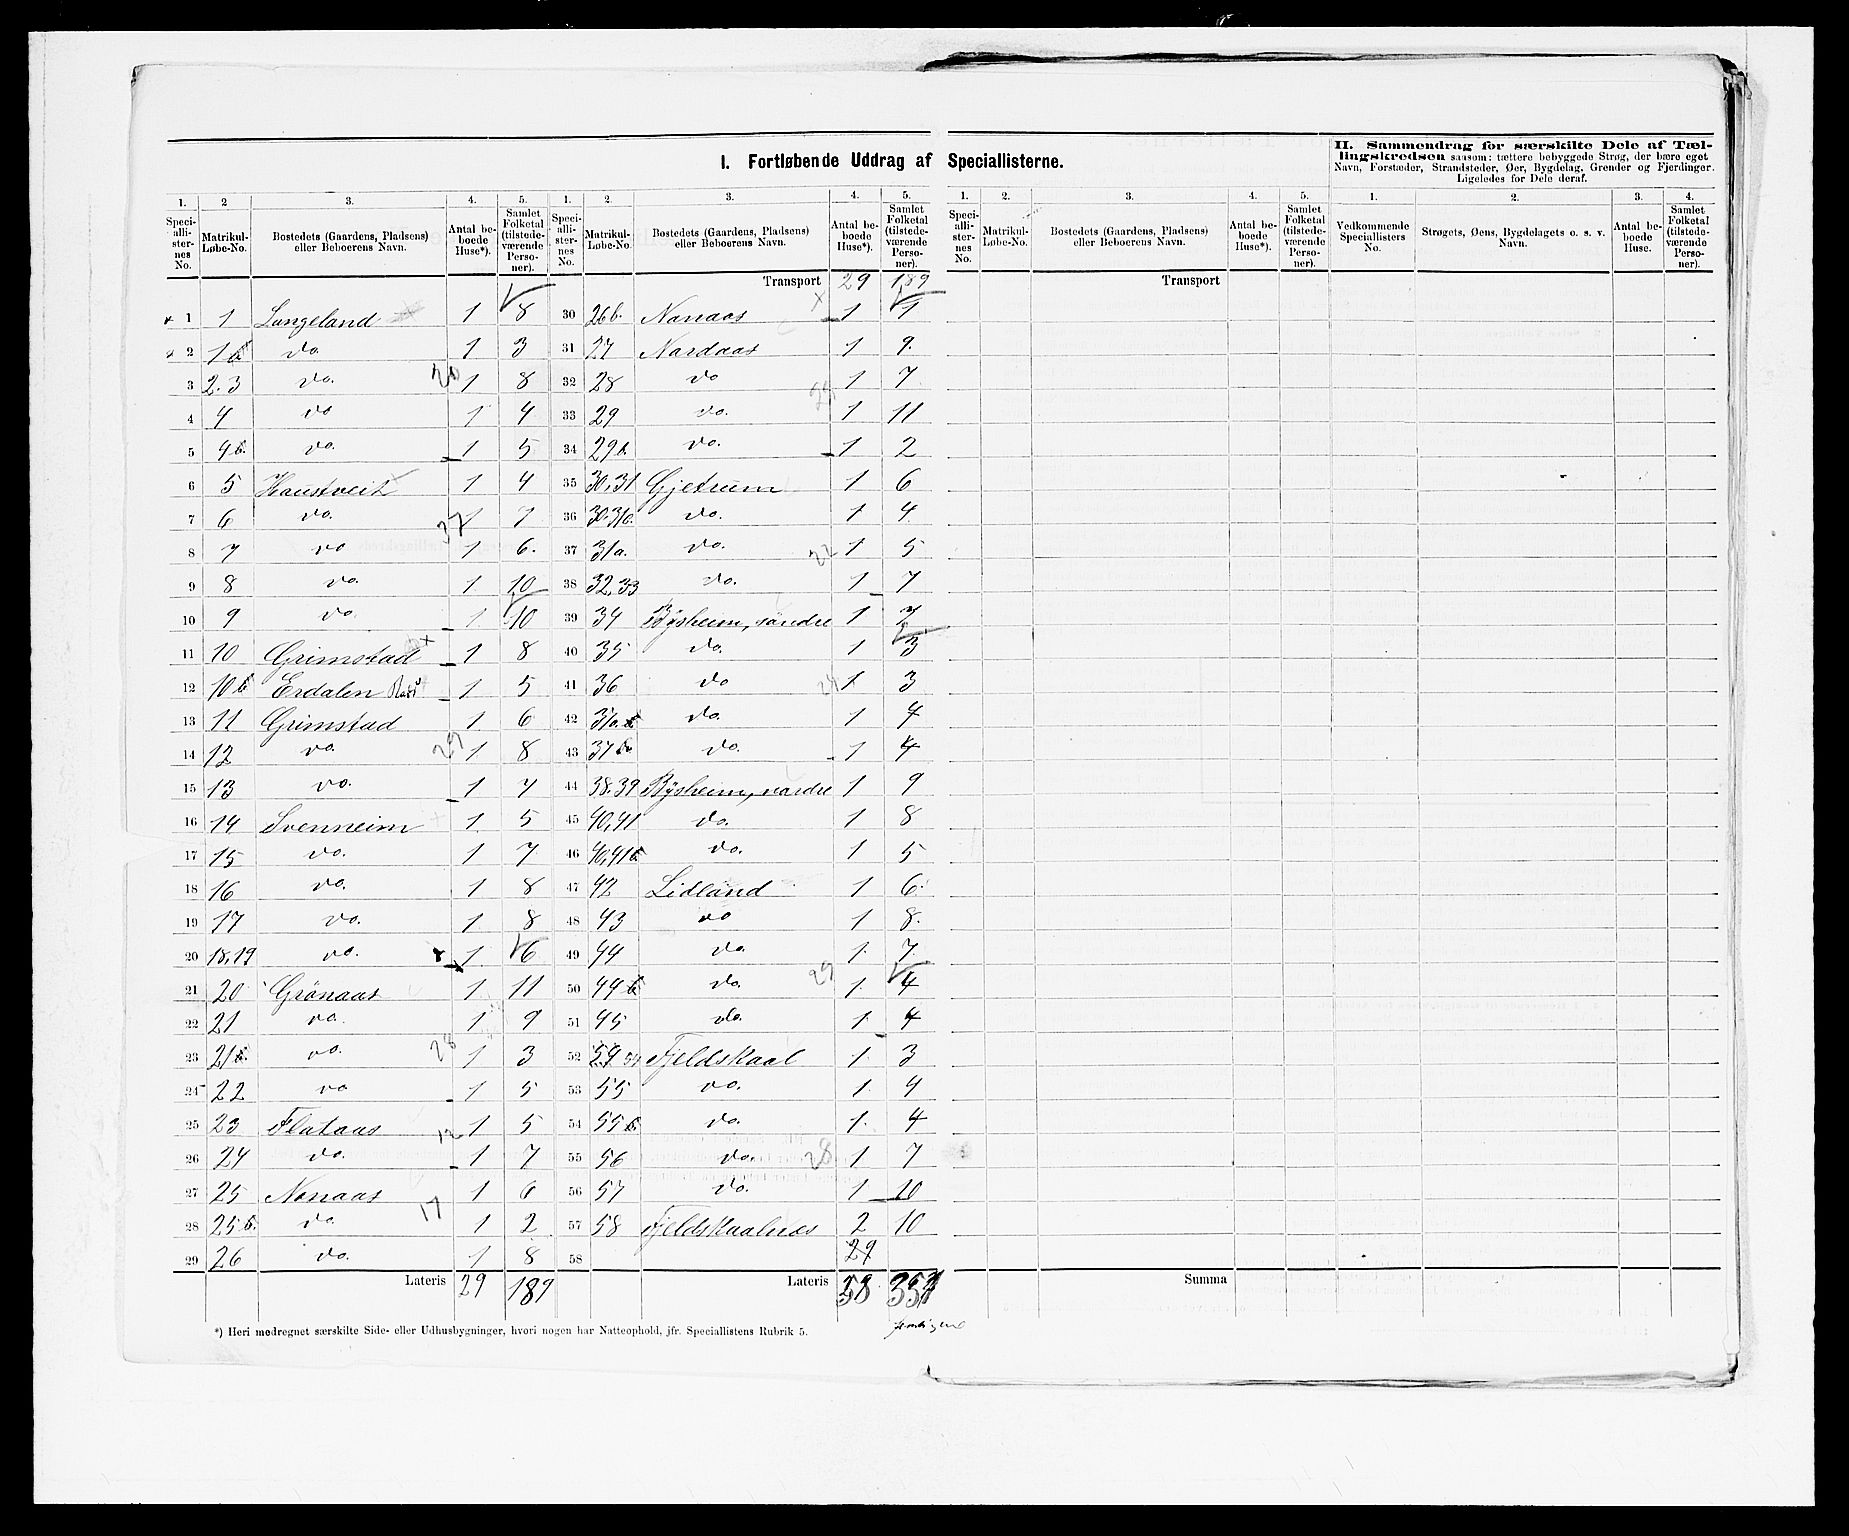 I. Fortløbende Uddrag af Speciallisterne.
II. Sammendrag for særskilte Dele af Tæl-
lingskredsen saasom: tættere bebyggede Strøg, der bære eget
Navn, Forstæder, Strandsteder, Øer, Bygdelag, Grender og Fjerdinger.
Ligeledes for Dele deraf.
1. 2 3. 4. 5. 1. 2. 3. 4. 5. 1. 2. 3. 4. 5. 1. 2. 3. 4.
Speciallisternes No. Matrikul-Løbe-No. Bostedets (Gaardens, Pladsens) eller Beboerens Navn. Antal beboede Huse*). Samlet Folketal (tilstedeværende Personer).
Speciallisternes No. Matrikul-Løbe-No. Bostedets (Gaardens, Pladsens) eller Beboerens Navn. Antal beboede Huse*). Samlet Folketal (tilstedeværende Personer).
Speciallisternes No. Matrikul-Løbe-No. Bostedets (Gaardens, Pladsens) eller Beboerens Navn. Antal beboede Huse*). Samlet Folketal (tilstedeværende Personer).
Vedkommende Speciallisters No. Strøgets, Øens, Bygdelagets o. s. v. Navn. Antal beboede Huse. Samlet Folketal (tilstedeværende Personer).
Transport 29 189 Transport
1 1 Langeland 1 8 30 26b. Nonaas 1 1
2 1b do. 1 3 31 27 Nordaas 1 9.
3 2.3 do. 20 1 8 32 28 do 1 7
4 4 do 1 4 33 29 do. 1 11
5 4b. do. 1 5 34 29b. do. 1 2
6 5 Haustveit 1 4 35 30,31 Gjetrum 1 6
7 6 do. 37 1 7 36 30.31b. do. 1 4
8 7 do 1 6. 37 31a. do. 22 1 5
9 8 do. 1 10 38 32,33 do. 1 7
10 9 do. 1 10 39 34 Bÿsheim, söndre 1 7
11 10 Grimstad 1 8 40 35 do. 1 3
12 10b Erdalen 1 5 41 36 do 1 3
13 11 Grimstad 1 6 42 do. 1 4
14 12 do. 29 1 8 43 37b do. 1 4
15 13 do. 1 7 44 38.39 Bÿsheim, nordre 1 9
16 14 Svenneim 1 5 45 40,41 do. 1 8
17 15 do. 1 7 46 40,41b do. 1 5
18 16 do. 1 8 47 42 Lidland 1 6.
19 17 do. 1 8 48 43 do 1 8.
20 18,19 do. 1 6 49 44 do. 1 7
21 20 Grönaas 1 11 50 44b do. 29 1 4
22 21 do. 1 9 51 45 do. 1 4
23 21b. do. 28 1 3 52 54 Fjeldskaal 1 3
24 22 do 1 5 53 55 do. 1 4
25 23 Flataas 12 1 5 54 55b. do. 1 4
26 24 do. 1 7 55 56 do. 28 1 7
27 25 Nonaas 1 6 56 57 do. 1 10
28 25b. do. 17 1 2 57 58 Fjeldskaalnes 2 10
29 26 do. 1 8 58 29
Lateris 29 189 Lateris 58 Summa
*) Heri medregnet særskilte Side- eller Udhusbygninger, hvori nogen har Natteophold, jfr. Speciallistens Rubrik 5.